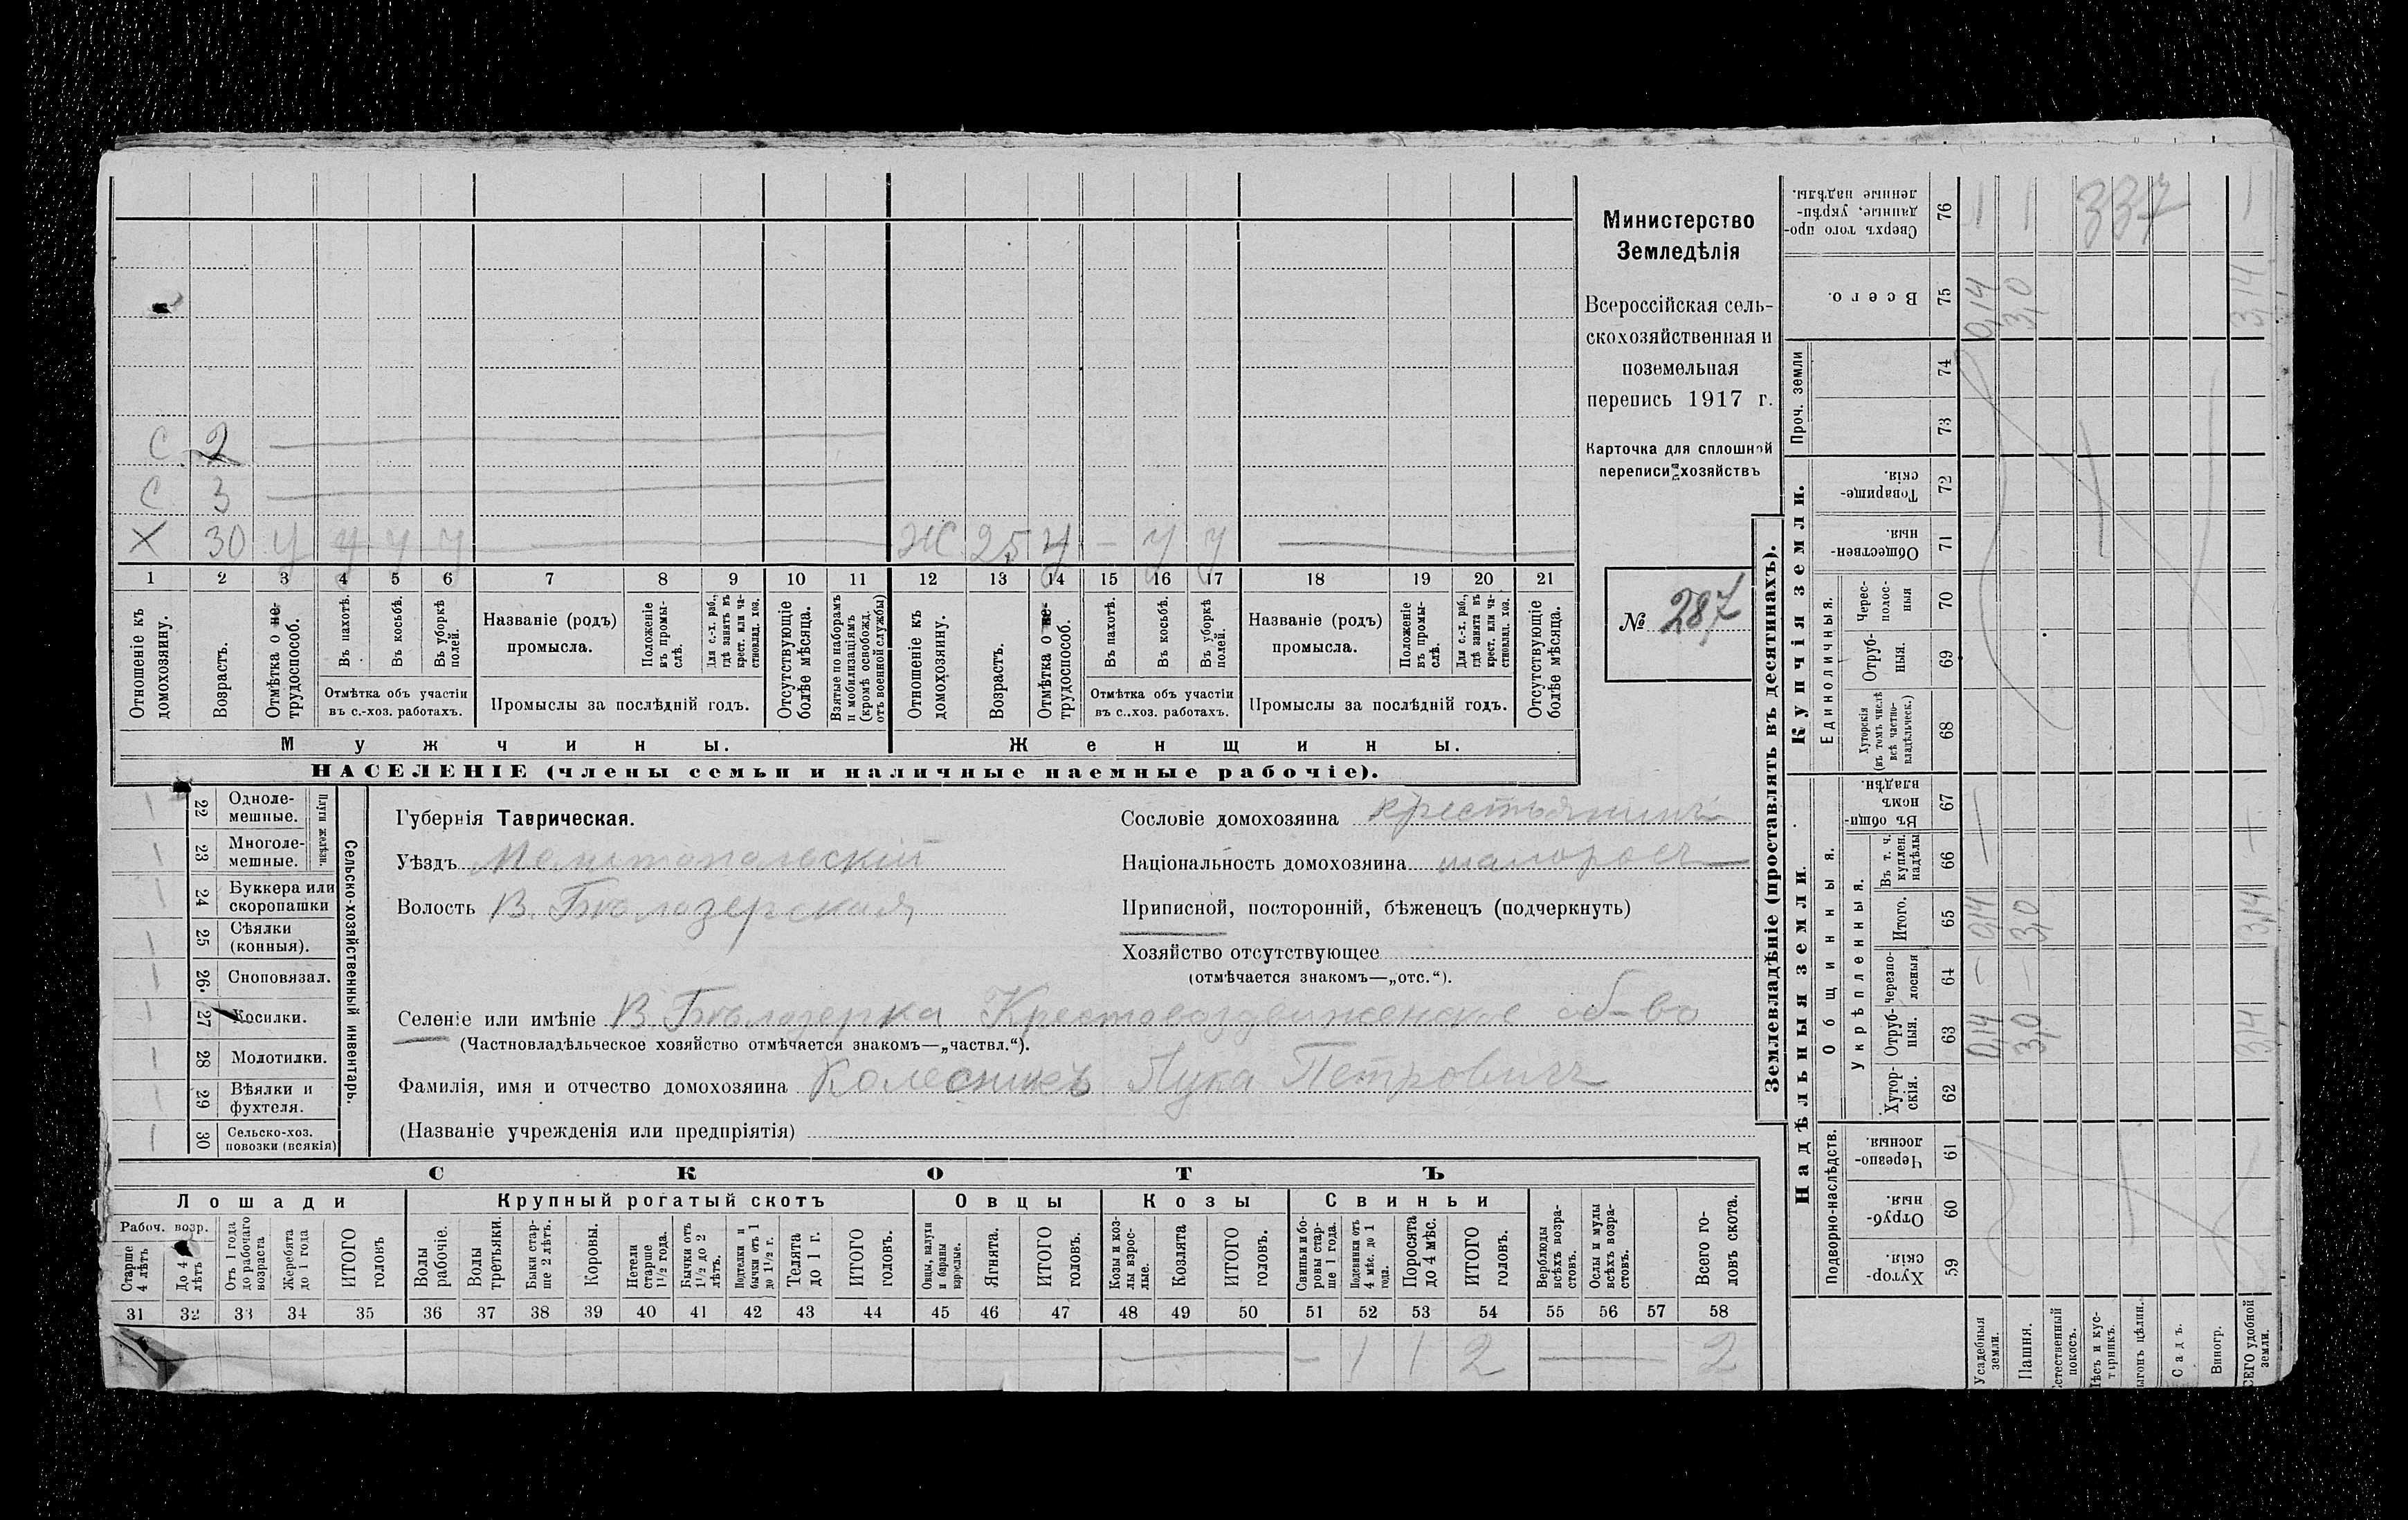 С 2
С 3
Х 30 у у у у — Ж 25 у — у у —
1 2 3 4 5 6 7 8 9 10 11 12 13 14 15 16 17 18 19 20 21
Отношеніе къ домохозяину.
Возрастъ.
Отмѣтка о не-трудоспособ.
Въ пахотѣ.
Въ косьбѣ.
Въ уборкѣ полей.
Отмѣтка объ участіи
въ с.-хоз. работахъ.
Названіе (родъ)
промысла.
Положеніе въ промы-слѣ.
Для с.-х. раб., гдѣ занятъ въ крест. или ча-стновлад. хоз.
Промыслы за послѣдній годъ.
Отсутствующіе болѣе мѣсяца.
Взятые по наборамъ и мобилизаціямъ (кромѣ освобожд. отъ военной службы)
Отношеніе къ домохозяину.
Возрастъ.
Отмѣтка о не-трудоспособ.
Въ пахотѣ.
Въ косьбѣ.
Въ уборкѣ полей.
Отмѣтка объ участіи
въ с.-хоз. работахъ.
Названіе (родъ)
промысла.
Положеніе въ промы-слѣ.
Для с.-х. раб., гдѣ занята въ крест. или ча-стновлад. хоз.
Промыслы за послѣдній годъ.
Отсутствующіе болѣе мѣсяца.
Мужчины.
Женщины.
НАСЕЛЕНІЕ (члены семьи и наличные наемные рабочіе).
Министерство
Земледѣлія
Всероссійская сель-
скохозяйственная и
поземельная
перепись 1917 г.
Карточка для сплошной
переписи хозяйствъ
№ 287
Сельско-хозяйственный инвентарь.
Плуги желѣзн.
22 Одноле-
мешные.
23 Многоле-
мешные.
24 Буккера или
скоропашки
25 Сѣялки
(конныя).
26 Сноповязал.
27 Косилки.
28 Молотилки.
29 Вѣялки и
фухтеля.
30 Сельско-хоз.
повозки (всякія)
Губернія Таврическая.
Уѣздъ Мелитопольскій
Волость В. Бѣлозерская
Сословіе домохозяина крестьянинъ
Національность домохозяина малороссъ
Приписной, посторонній, бѣженецъ (подчеркнуть)
Хозяйство отсутствующее
(отмѣчается знакомъ—„отс.“).
Селеніе или имѣніе В. Бѣлозерка Крестовоздвиженское об-во
(Частновладѣльческое хозяйство отмѣчается знакомъ—„частвл.“).
Фамилія, имя и отчество домохозяина Колесникъ Лука Петровичъ
(Названіе учрежденія или предпріятія)
СКОТЪ
Лошади
Крупный рогатый скотъ
Овцы
Козы
Свиньи
Рабоч. возр.
Старше 4 лѣтъ
До 4 лѣтъ
Отъ 1 года до рабочаго возраста
Жеребята до 1 года
ИТОГО головъ
Волы рабочіе.
Волы третьяки.
Быки стар-ше 2 лѣтъ.
Коровы.
Нетели старше 1½ года.
Бычки отъ 1½ до 2 лѣтъ.
Подтелки и бычки отъ 1 до 1½ г.
Телята до 1 г.
ИТОГО головъ.
Овцы, валухи и бараны взрослые.
Ягнята.
ИТОГО головъ.
Козы и коз-лы взрос-лые.
Козлята
ИТОГО головъ.
Свиньи и бо-ровы стар-ше 1 года.
Подсвинки отъ 4 мѣс. до 1 года.
Поросята до 4 мѣс.
ИТОГО головъ.
Верблюды всѣхъ возра-стовъ.
Ослы и мулы всѣхъ возра-стовъ.
Всего го-ловъ скота.
31 32 33 34 35 36 37 38 39 40 41 42 43 44 45 46 47 48 49 50 51 52 53 54 55 56 57 58
— 1 1 2 — 2
Землевладѣніе (проставлять въ десятинахъ).
Надѣльныя земли.
Купчія земли.
Проч. земли
Подворно-наслѣдств.
Общинныя.
Укрѣпленныя.
Единоличныя.
59 Хутор-скія.
60 Отруб-ныя.
61 Черезпо-лосныя.
62 Хутор-скія.
63 Отруб-ныя. 0,14 3,0 3,14
64 Черезпо-лосныя — —
65 Итого. 0,14 3,0 3,14
66 Въ т. ч. куплен. надѣлы
67 Въ общи-номъ владѣн.
68 Хуторскія (въ томъ числѣ всѣ частно-владѣльческ.)
69 Отруб-ныя.
70 Черес-полос-ныя
71 Обществен-ныя.
72 Товарище-скія.
73
74
75 Всего. 0,14 3,0 3,14
76 Сверхъ того про-данные, укрѣп-ленные надѣлы.
337
Усадебныя земли.
Пашня.
Естественный покосъ.
Лѣсъ и кус-тарникъ.
Выгонъ цѣлин.
Садъ.
Виногр.
ВСЕГО удобной земли.